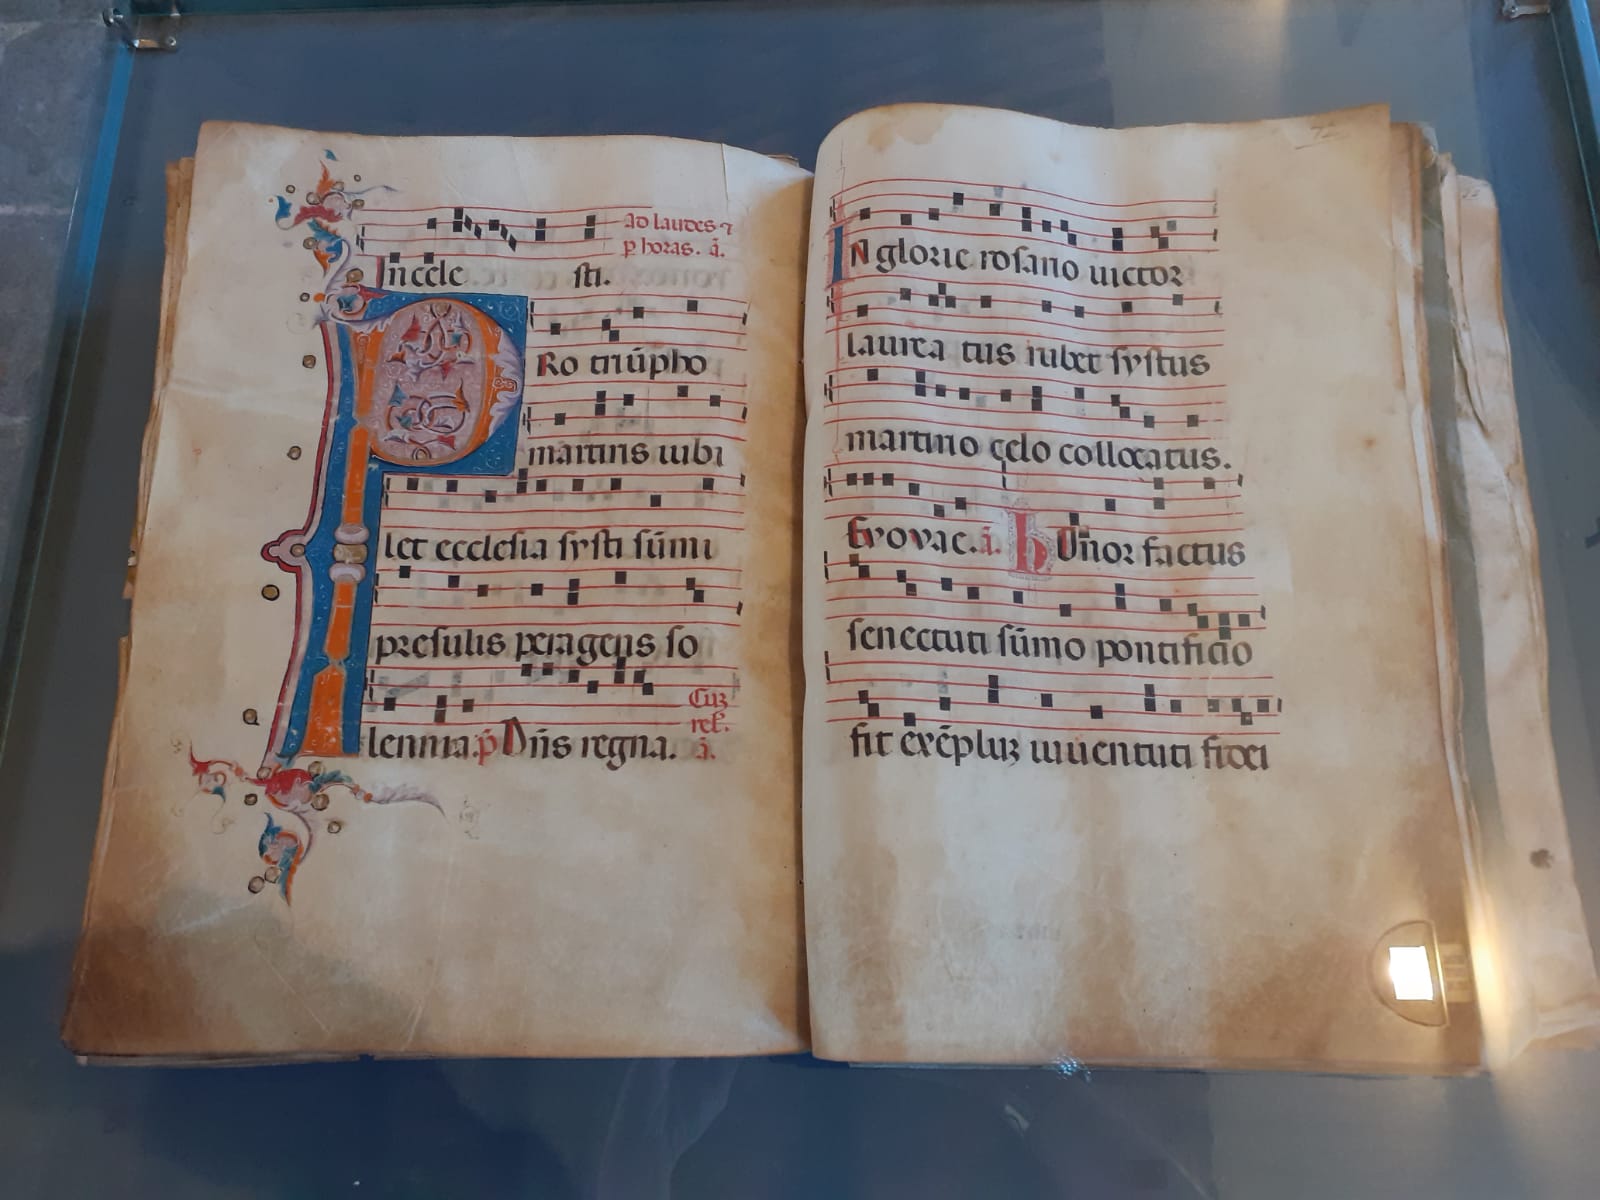 Ad laudes ⁊
p̱ horas. ā.
In cele sti.
PRo triūpho
martiris iubi
let ecclesia systi sūmi
presulis peragens so
Cuȝ
rel̄.
lennia. p̄ Dn̄s regna. ā.
72
IN glorie rosario uictor
laurea tus iubet systus
martirio celo collocatus.
Evovae. ā. hOnor factus
senectuti sūmo pontificio
fit exēpluȝ iuuentuti fidei